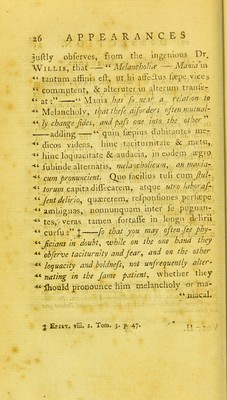 26 APPEARANCES
justly observes, from the ingenious Dr.
WILLIS, that — “ Melancholia — Mania in
“ tantum affinis est, ut hi affectus sæpe vices
“ commutent, & alteruter in alterum transe-
“ at:” — “ Mania has so near a relation to
“ Melancholy, that these disorders often mutual-
“ ly change sides, and pass one into the other”
— adding — “ quin sæpius dubitantes me-
“ dicos videas, hinc taciturnitate & metu,
“ hinc loquacitate & audacia, in eodem ægro
“ subinde alternatis, melancholicum, an mania-
“ cum pronuncient. Quo facilius tuli cum stul-
“ torum capita dissecarem, atque utro laboras-
“ sent delirio, quærerem, responsiones persæpe
“ ambiguas, nonnunquam inter se pugnan-
“ tes, veras tamen fortasse in longo delirii
“ cursu:” ‡ — so that you may often see phy-
“ sicians in doubt, while on the one hand they
“ observe taciturnity and fear, and on the other
“ loquacity and boldness, not unfrequently alter-
“ nating in the same patient, whether they
“ should pronounce him melancholy or ma-
“ niacal.
‡ EPIST. viii. 1. Tom. 3. p. 47.